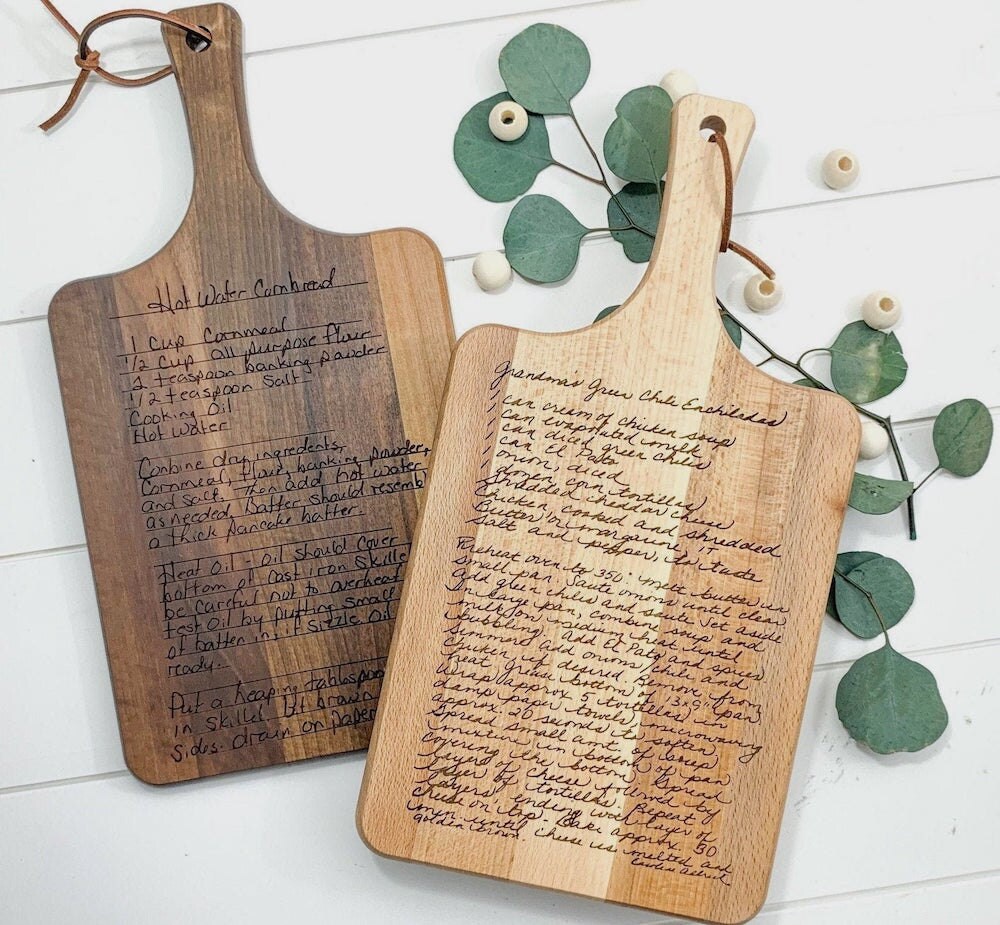 Hot Water Cornbread
1 Cup Cornmeal
1/2 Cup all purpose flour
2 teaspoon banking powder
1/2 teaspoon Salt
Cooking Oil
Hot Water
Conbine dry ingredents.
Cornmeal, flour, banking powder,
and salt. Then add hot water
as needed. Batter should resemb
a thick pancake batter.
Heat Oil - Oil should Cover
bottom of Cast iron Skille
be Careful not to overheat
test Oil by putting small
of batten in, if Sizzle Oil
ready.
Put a heaping tablespoo
in Skillet let brown
Sides. Drain on paper
Grandma's Green Chile Enchiladas
1 can cream of chicken soup
1 can evaporated milk
1 can diced green chiles
1 can El Pato
1 onion, diced
1 dozen corn tortillas
Shredded cheddar cheese
Chicken, cooked and shredded
Butter or margarine
Salt and pepper, to taste
Preheat oven to 350°. Melt butter in
small pan. Saute onions until clear.
Add green chiles and saute. Set aside
In large pan, combine soup and
milk on medium heat until
bubbling. Add El Pato and spices
Simmer, add onions, chile and
chicken if desired. Remove from
heat. Grease bottom of 13x9" pan.
Wrap approx tortillas in
damp paper towel, microwaving
approx. 20 seconds to soften
Spread small amt of soup
mixture in bottom of pan
covering the bottom. Spread
layers of cheese followed by
layer of tortillas. Repeat
layers, ending with layer of
cheese on top. Bake approx. 30
min. until cheese is melted and
golden brown.